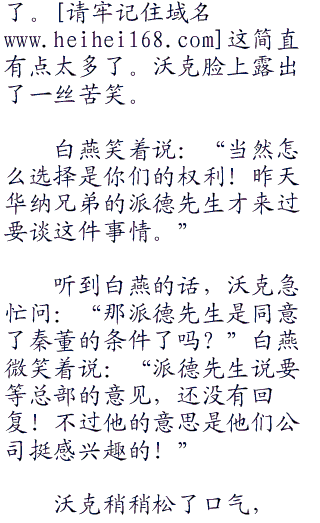 了。[请牢记住域名
www.heihei168.com]这简直
有点太多了。沃克脸上露出
了一丝苦笑。
白燕笑着说：“当然怎
么选择是你们的权利！昨天
华纳兄弟的派德先生才来过
要谈这件事情。”
听到白燕的话，沃克急
忙问：“那派德先生是同意
了秦董的条件了吗？”白燕
微笑着说：“派德先生说要
等总部的意见，还没有回
复！不过他的意思是他们公
司挺感兴趣的！”
沃克稍稍松了口气，